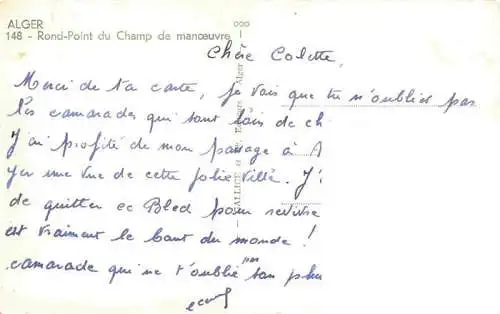 ALGER
148 - Rond-Point du Champ de manœuvre
Chère Colette,
Merci de ta carte, je vois que tu n'oublies pas
les camarades qui sont loin de ch
J'ai profité de mon passage à A
une vue de cette jolie ville. J'
de quitter ce Bled pour revivre
est vraiment le bout du monde !
camarade qui ne t'oublie pas